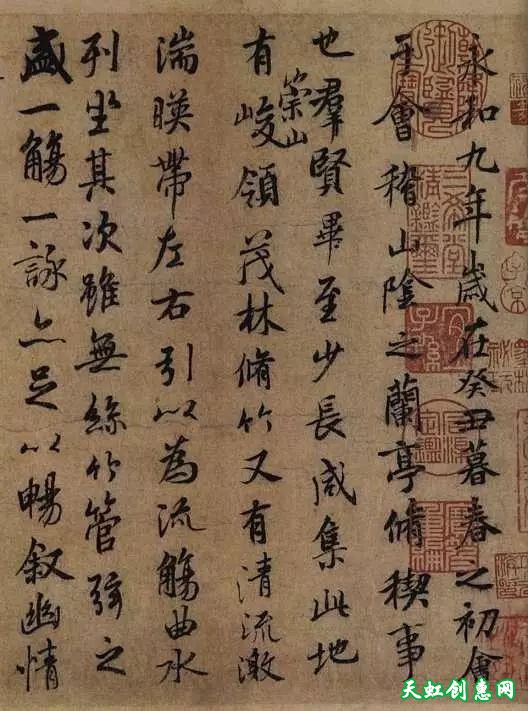 永和九年歲在癸丑暮春之初會
于會稽山陰之蘭亭脩稧事
也羣賢畢至少長咸集此地
有崇山峻領茂林脩竹又有清流激
湍暎帶左右引以為流觴曲水
列坐其次雖無絲竹管弦之
盛一觴一詠亦足以暢叙幽情
天虹创惠网